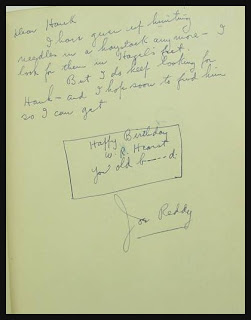 Dear Hank
I have given up hunting
needles in a haystack anymore - I
look for them in Hazel's feet.
But I do keep looking for
Hank - and I hope soon to find him
so I can get
Happy Birthday
W R Hearst
you old b----d
Joe Reddy